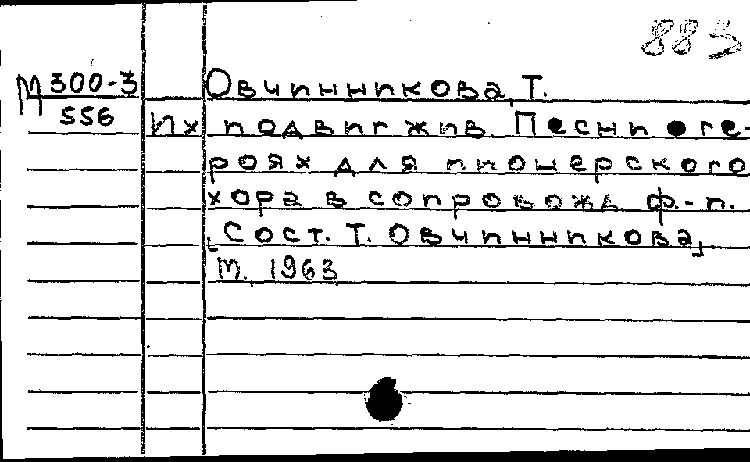 883
М 300-3
556
Овчинникова, Т.
Их подвиг жив. Песни о ге-
роях для пионерского
хора в сопровожд. ф.-п.
[Сост. Т. Овчинникова]
М., 1963